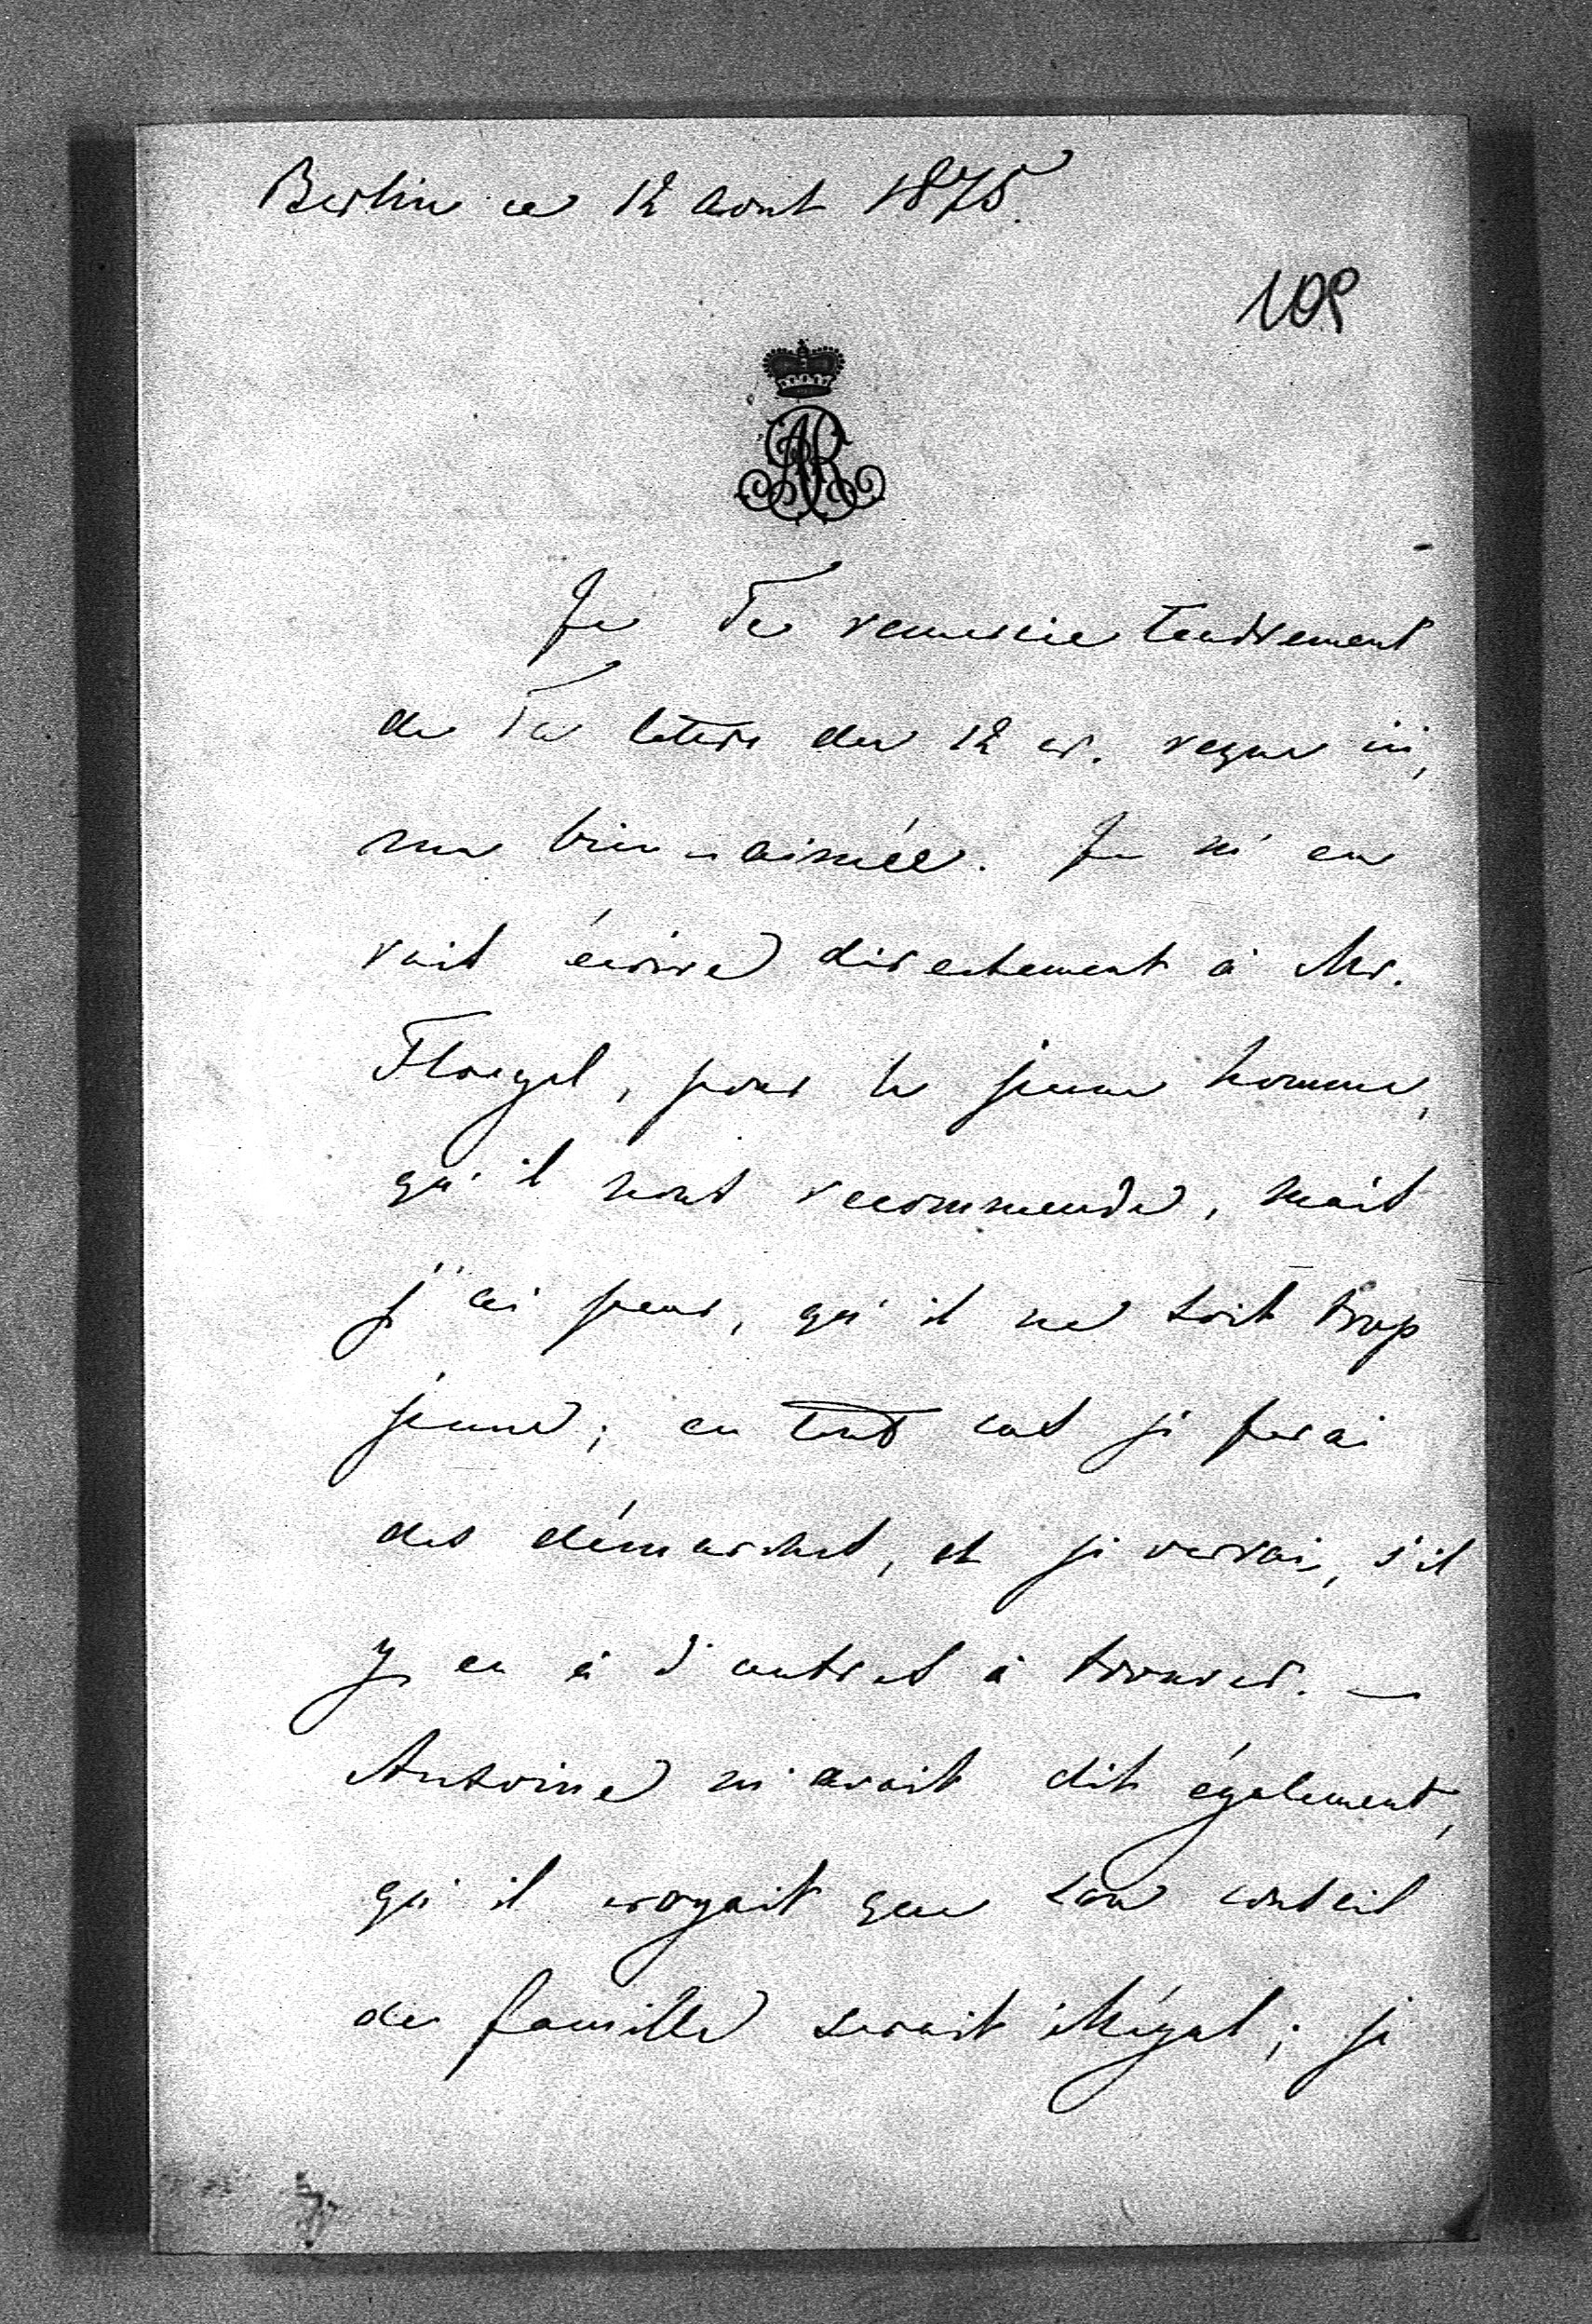 Berlin ce 12 Aout 1875.
109
AR
Je Te remercie tendrement
de Ta lettre du 12 cr. reçue ici,
ma bien-aimée. Je m'en
vais écrire directement à Mr.
Floegel, pour le jeune homme,
qu'il nous recommende, mais
j'ai peur, qu'il ne soit trop
jeune; en tout cas je ferai
des démarches, et je verrai, s'il
y en a d'autres à trouver. —
Antoine m'avait dit également,
qu'il croyait que son conseil
de famille serait illégal; je